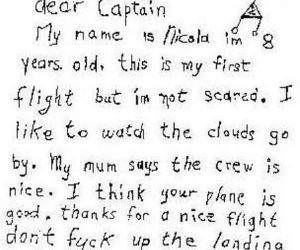 dear Captain
My name is Nicola im 8
years old, this is my first
flight but im not scared. I
like to watch the clouds go
by. My mum says the crew is
nice. I think your plane is
good. thanks for a nice flight
don't fuck up the landing